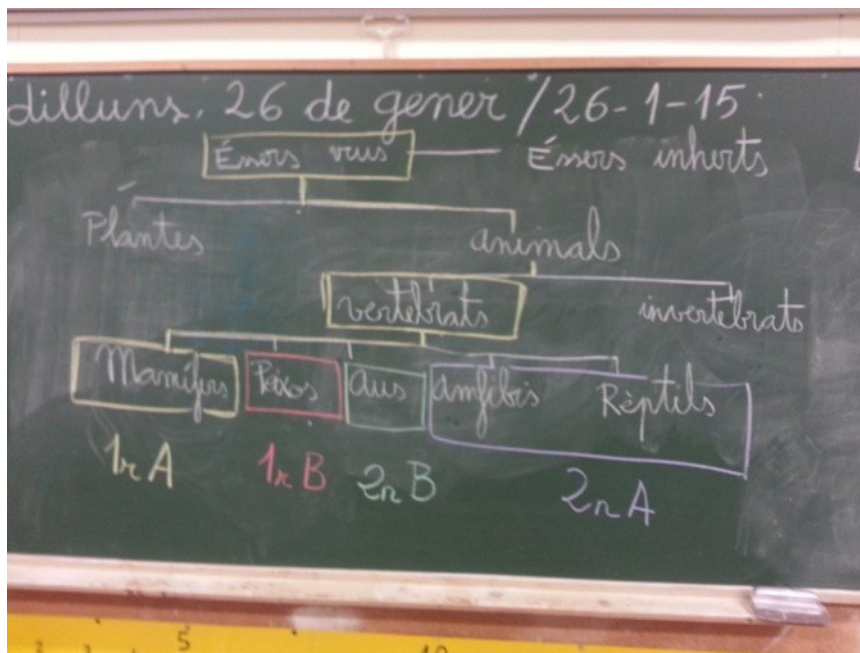 dilluns, 26 de gener / 26-1-15
Éssers vius Éssers inherts
Plantes animals
vertebrats invertebrats
Mamífers Peixos Aus amfibis Rèptils
1r A 1r B 2n B 2n A
5 10